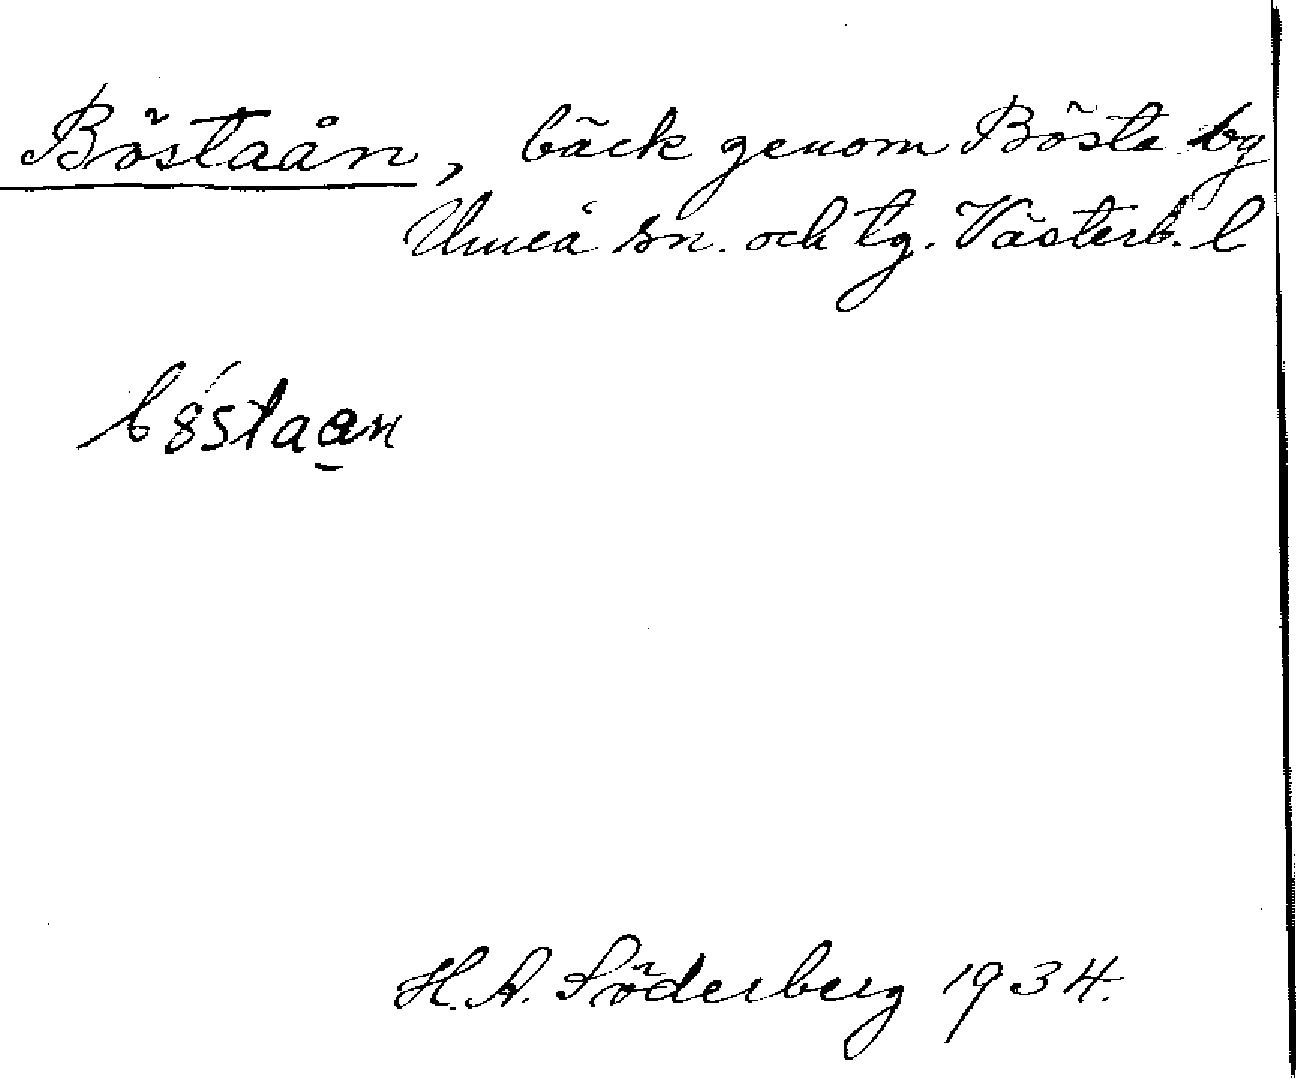 Böstaån, bäck genom Bösta by
Umeå sn. och tg. Västerb. l
b8́staa̲n
H. A. Söderberg 1934.